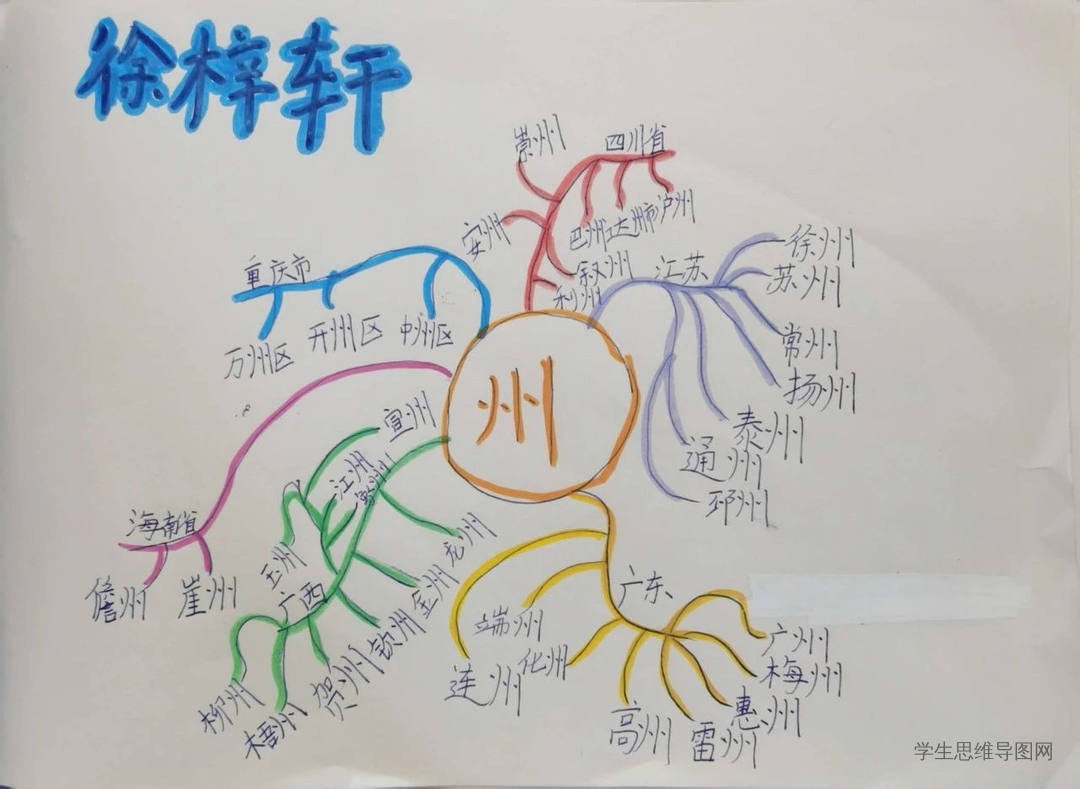 徐梓轩
崇州
四川省
安州
巴州
达州市
泸州
叙州
利州
江苏
徐州
苏州
常州
扬州
泰州
通州
邳州
重庆市
万州区
开州区
中州区
州
海南省
儋州
崖州
宣州
江州
玉州
龙州
金州
钦州
贺州
广西
柳州
梧州
广东
端州
连州
化州
高州
雷州
惠州
梅州
广州
学生思维导图网